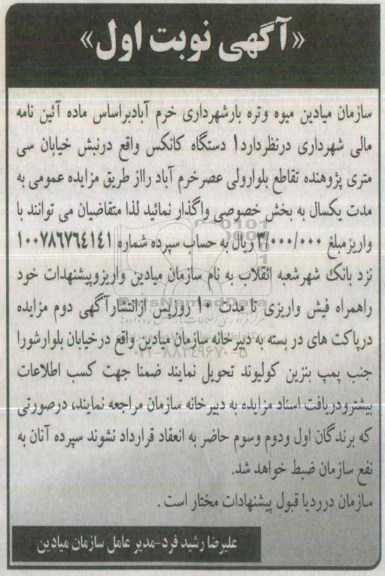 «آگهی نوبت اول»
سازمان میادین میوه وتره بارشهرداری خرم آبادبراساس ماده آئین نامه
مالی شهرداری درنظردارد۱ دستگاه کانکس واقع درنبش خیابان سی
متری پژوهنده تقاطع بلوارولی عصرخرم آباد رااز طریق مزایده عمومی به
مدت یکسال به بخش خصوصی واگذار نمائید لذا متقاضیان می توانند با
واریزمبلغ ۳/۰۰۰/۰۰۰ ریال به حساب سپرده شماره ۱۰۰۷۸۶۷۶۴۱۴۱
نزد بانک شهرشعبه انقلاب به نام سازمان میادین واریزوپیشنهادات خود
راهمراه فیش واریزی تا مدت ۱۰ روزپس ازانتشارآگهی دوم مزایده
درپاکت های در بسته به دبیرخانه سازمان میادین واقع درخیابان بلوارشورا
جنب پمپ بنزین کولیوند تحویل نمایند ضمنا جهت کسب اطلاعات
بیشترودریافت اسناد مزایده به دبیرخانه سازمان مراجعه نمایند، درصورتی
که برندگان اول ودوم وسوم حاضر به انعقاد قرارداد نشوند سپرده آنان به
نفع سازمان ضبط خواهد شد.
سازمان درردیا قبول پیشنهادات مختار است .
علیرضا رشید فرد-مدیر عامل سازمان میادین